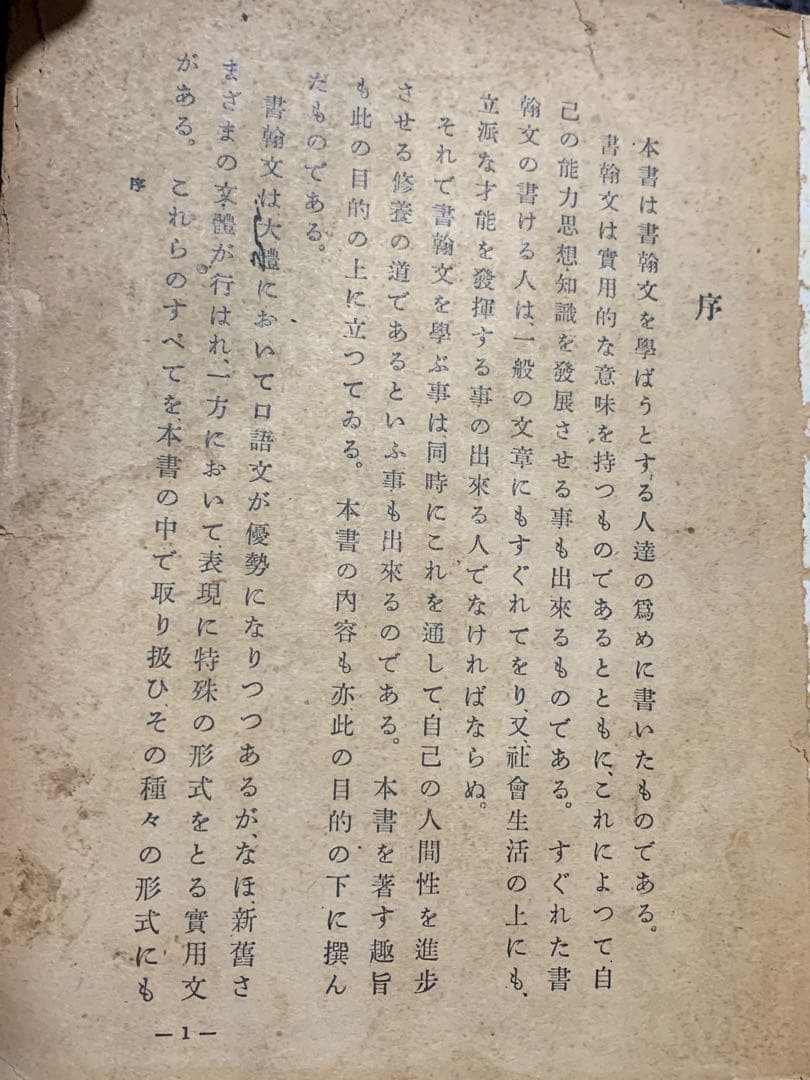 序
本書は書翰文を學ばうとする人達の爲めに書いたものである。
書翰文は實用的な意味を持つものであるとともに、これによつて自
己の能力思想知識を發展させる事も出來るものである。すぐれた書
翰文の書ける人は、一般の文章にもすぐれてをり、又、社會生活の上にも、
立派な才能を發揮する事の出來る人でなければならぬ。
それで書翰文を學ぶ事は同時にこれを通して、自己の人間性を進步
させる修養の道であるといふ事も出來るのである。本書を著す趣旨
も此の目的の上に立つてゐる。本書の內容も亦、此の目的の下に撰ん
だものである。
書翰文は大體において口語文が優勢になりつつあるが、なほ、新舊さ
まざまの文體が行はれ、一方において、表現に特殊の形式をとる實用文
がある。これらのすべてを、本書の中で取り扱ひその種々の形式にも
序
—1—